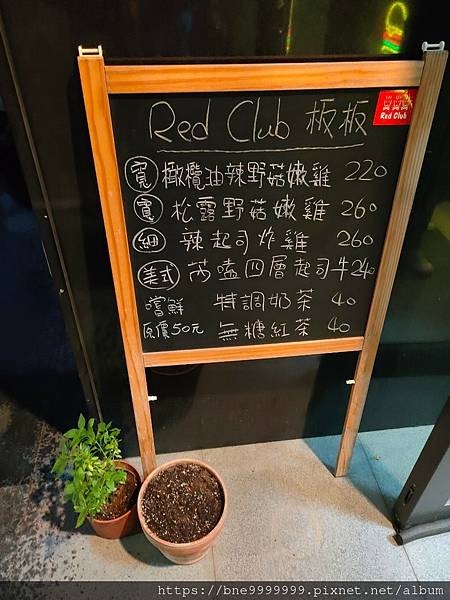 Red Club 板板
Red Club
寬 橄欖油辣野菇嫩雞 220
寬 松露野菇嫩雞 260
細 辣起司炸雞 260
美式 芮嗑四層起司牛 240
嚐鮮 特調奶茶 40
原價50元 無糖紅茶 40
https://bne9999999.pixnet.net/album